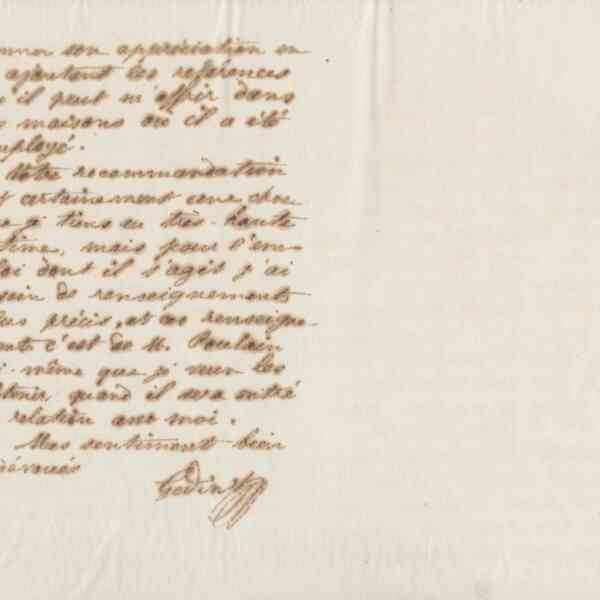 son appréciation en
ajoutant les références
qu'il peut m'offrir dans
maisons où il a été
employé.
Votre recommandation
certainement une chose
tiens en très-haute
estime, mais pour l'em-
ploi dont il s'agit j'ai
besoin de renseignements
plus précis, et ces renseigne-
ments c'est de M. Poulain
lui-même que je veux les
obtenir quand il sera entré
relation avec moi.
Mes sentiments bien
dévoués
Godin